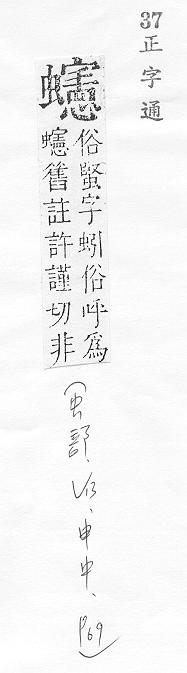 37 正字通
䘆
俗蜸字蚓俗呼爲
䘆舊註許謹切非
(虫部、申中、P69)